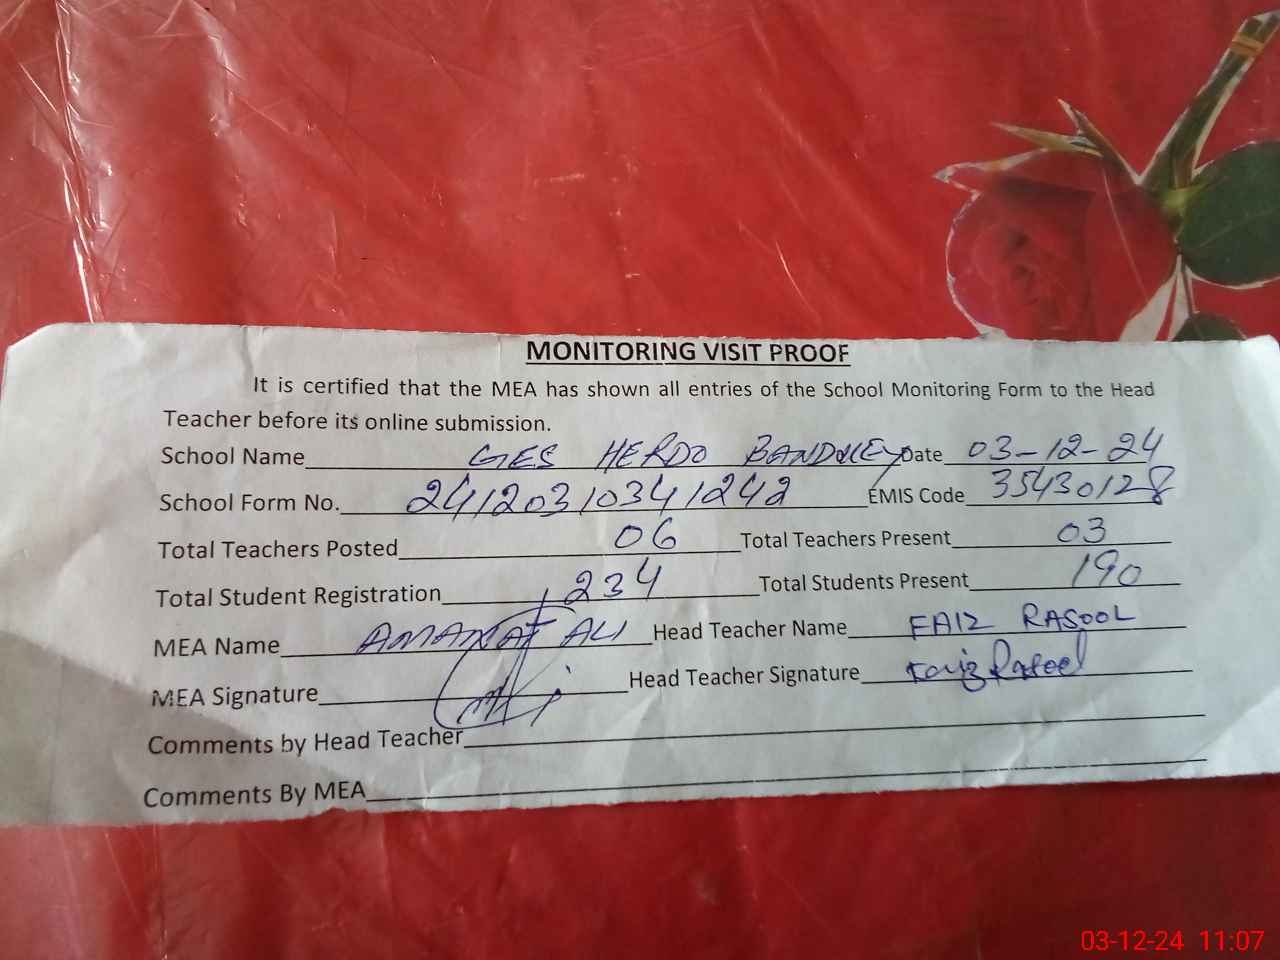 MONITORING VISIT PROOF
It is certified that the MEA has shown all entries of the School Monitoring Form to the Head
Teacher before its online submission.
School Name GES HERDO Date 03-12-24
School Form No. 24120310341242 EMIS Code 35430128
Total Teachers Posted 06 Total Teachers Present 03
Total Student Registration 234 Total Students Present 190
MEA Name AMANAT ALI Head Teacher Name FAIZ RASOOL
MEA Signature Head Teacher Signature Faiz Rasool
Comments by Head Teacher
Comments By MEA
03-12-24 11:07